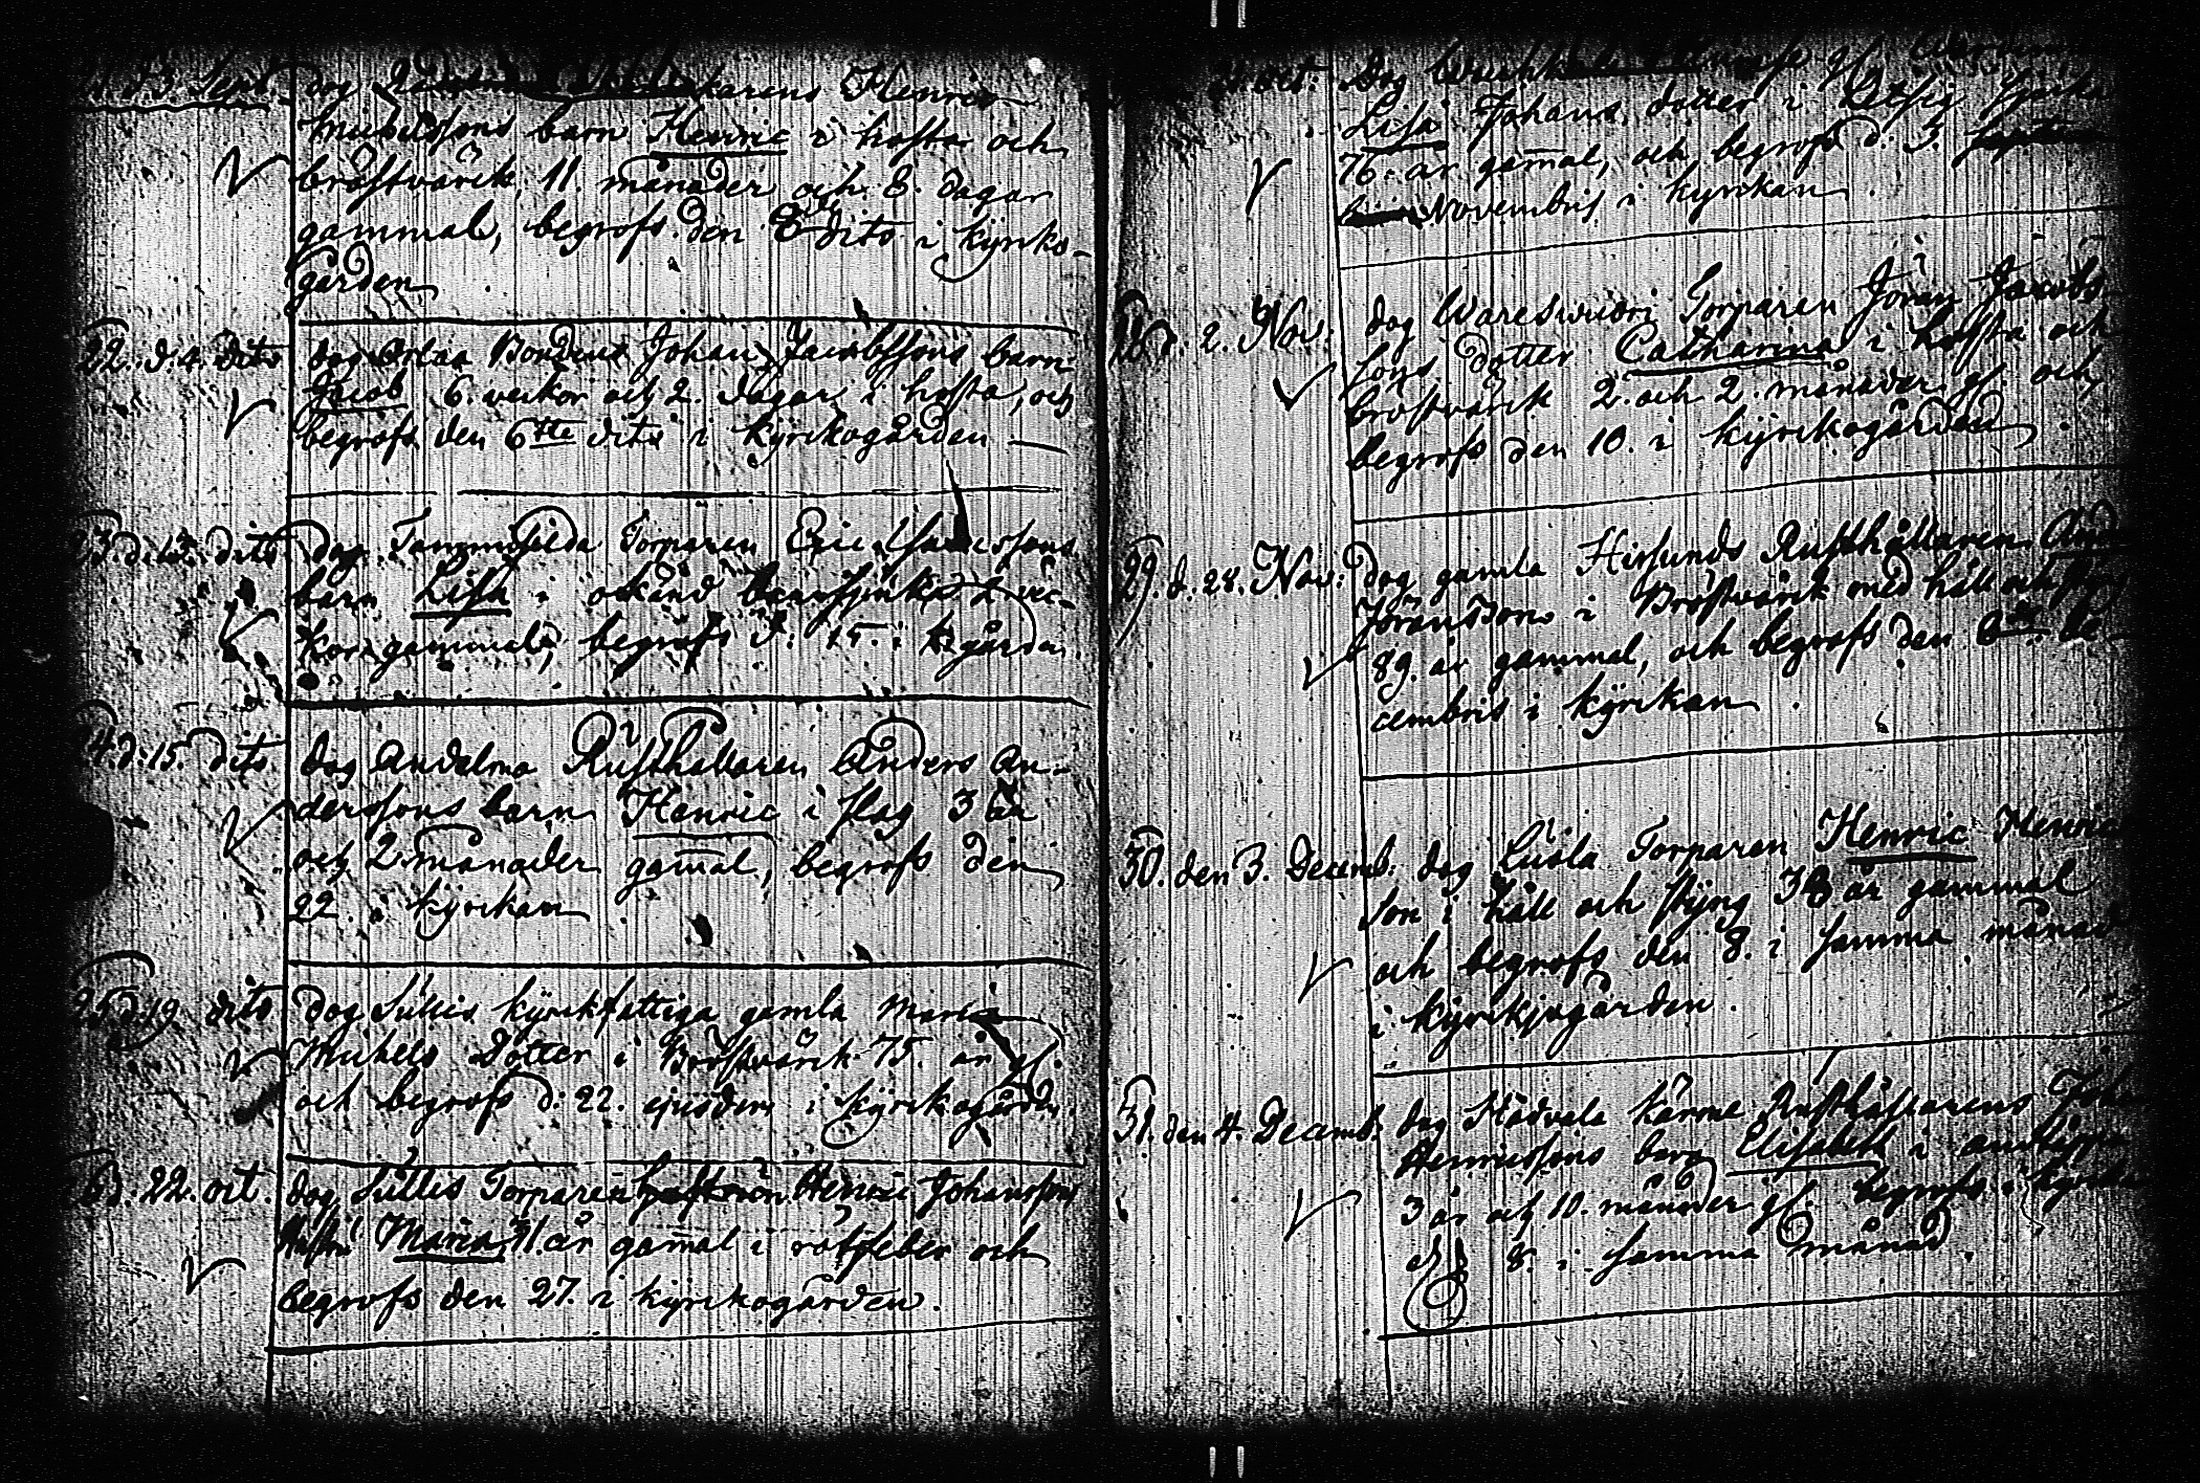 d. 3 Sept. dog karens Henric
Michelssons barn Henric i hosta och
bröstvärck, 11. månader och 8. dagar
gammal, begrofs den 8de dito i kÿrko-
gården
22. d. 4. dito dog Bondens Johan Jacobssons barn
Jacob 6. veckor och 2. dagar i hosta, och
begrofs den 6tte dito i kÿrckogården
23. dito dog Torparen Eric
barn Lisa i okänd 2 vec-
kor gammal, begrofs d. 15. i kgården
24. d. 15. dito dog Andelmo Rusthållaren Anders An-
derssons barn Henric i slag 3 år
och 2. månader gam̄al, begrofs den
22. i kÿrckan
25 d. 19 dito dog Sullis kÿrckfattiga gamla Maria
Michels Dotter i Bröstvärck 75. år gl.
och begrofs d. 22. ejusdem i kÿrckogården
d. 22. oct. dog Sullis Torparen Henric Johanssons
Hustru Maria 31. år gam̄al i rötfeber och
begrofs den 27. i kÿrckogården.
oct: Dog gl.
Lisa Johans dotter i
76. år gam̄al, och begrofs d. 3.
Novembris i kyrckan
28 d. 2. Nov: dog Torparen Jöran Jacobs
sons dotter Catharina i hosta och
bröstvärck 2. och 2. månader gl. och
begrofs den 10. i kÿrckogården
29. d. 28. Nov: dog gamla Hirsunds Rusthållaren And
Jöransson i Bröstvärck med håll och
89. år gammal, och begrofs den 6te De-
cembris i kÿrckan.
30. den 3. Decemb: dog Lusla Torparen Henric Henric
son i håll och stÿng 38 år gammal
och begrofs den 8. i samma månad
i kÿrckjogården.
31. den 4. Decemb: dog Rusthållarens Joh
Henricssons barn Elisabeth i
3 år och 10. månader gl. begrofs i kyrck
d. 8. i samma månad.